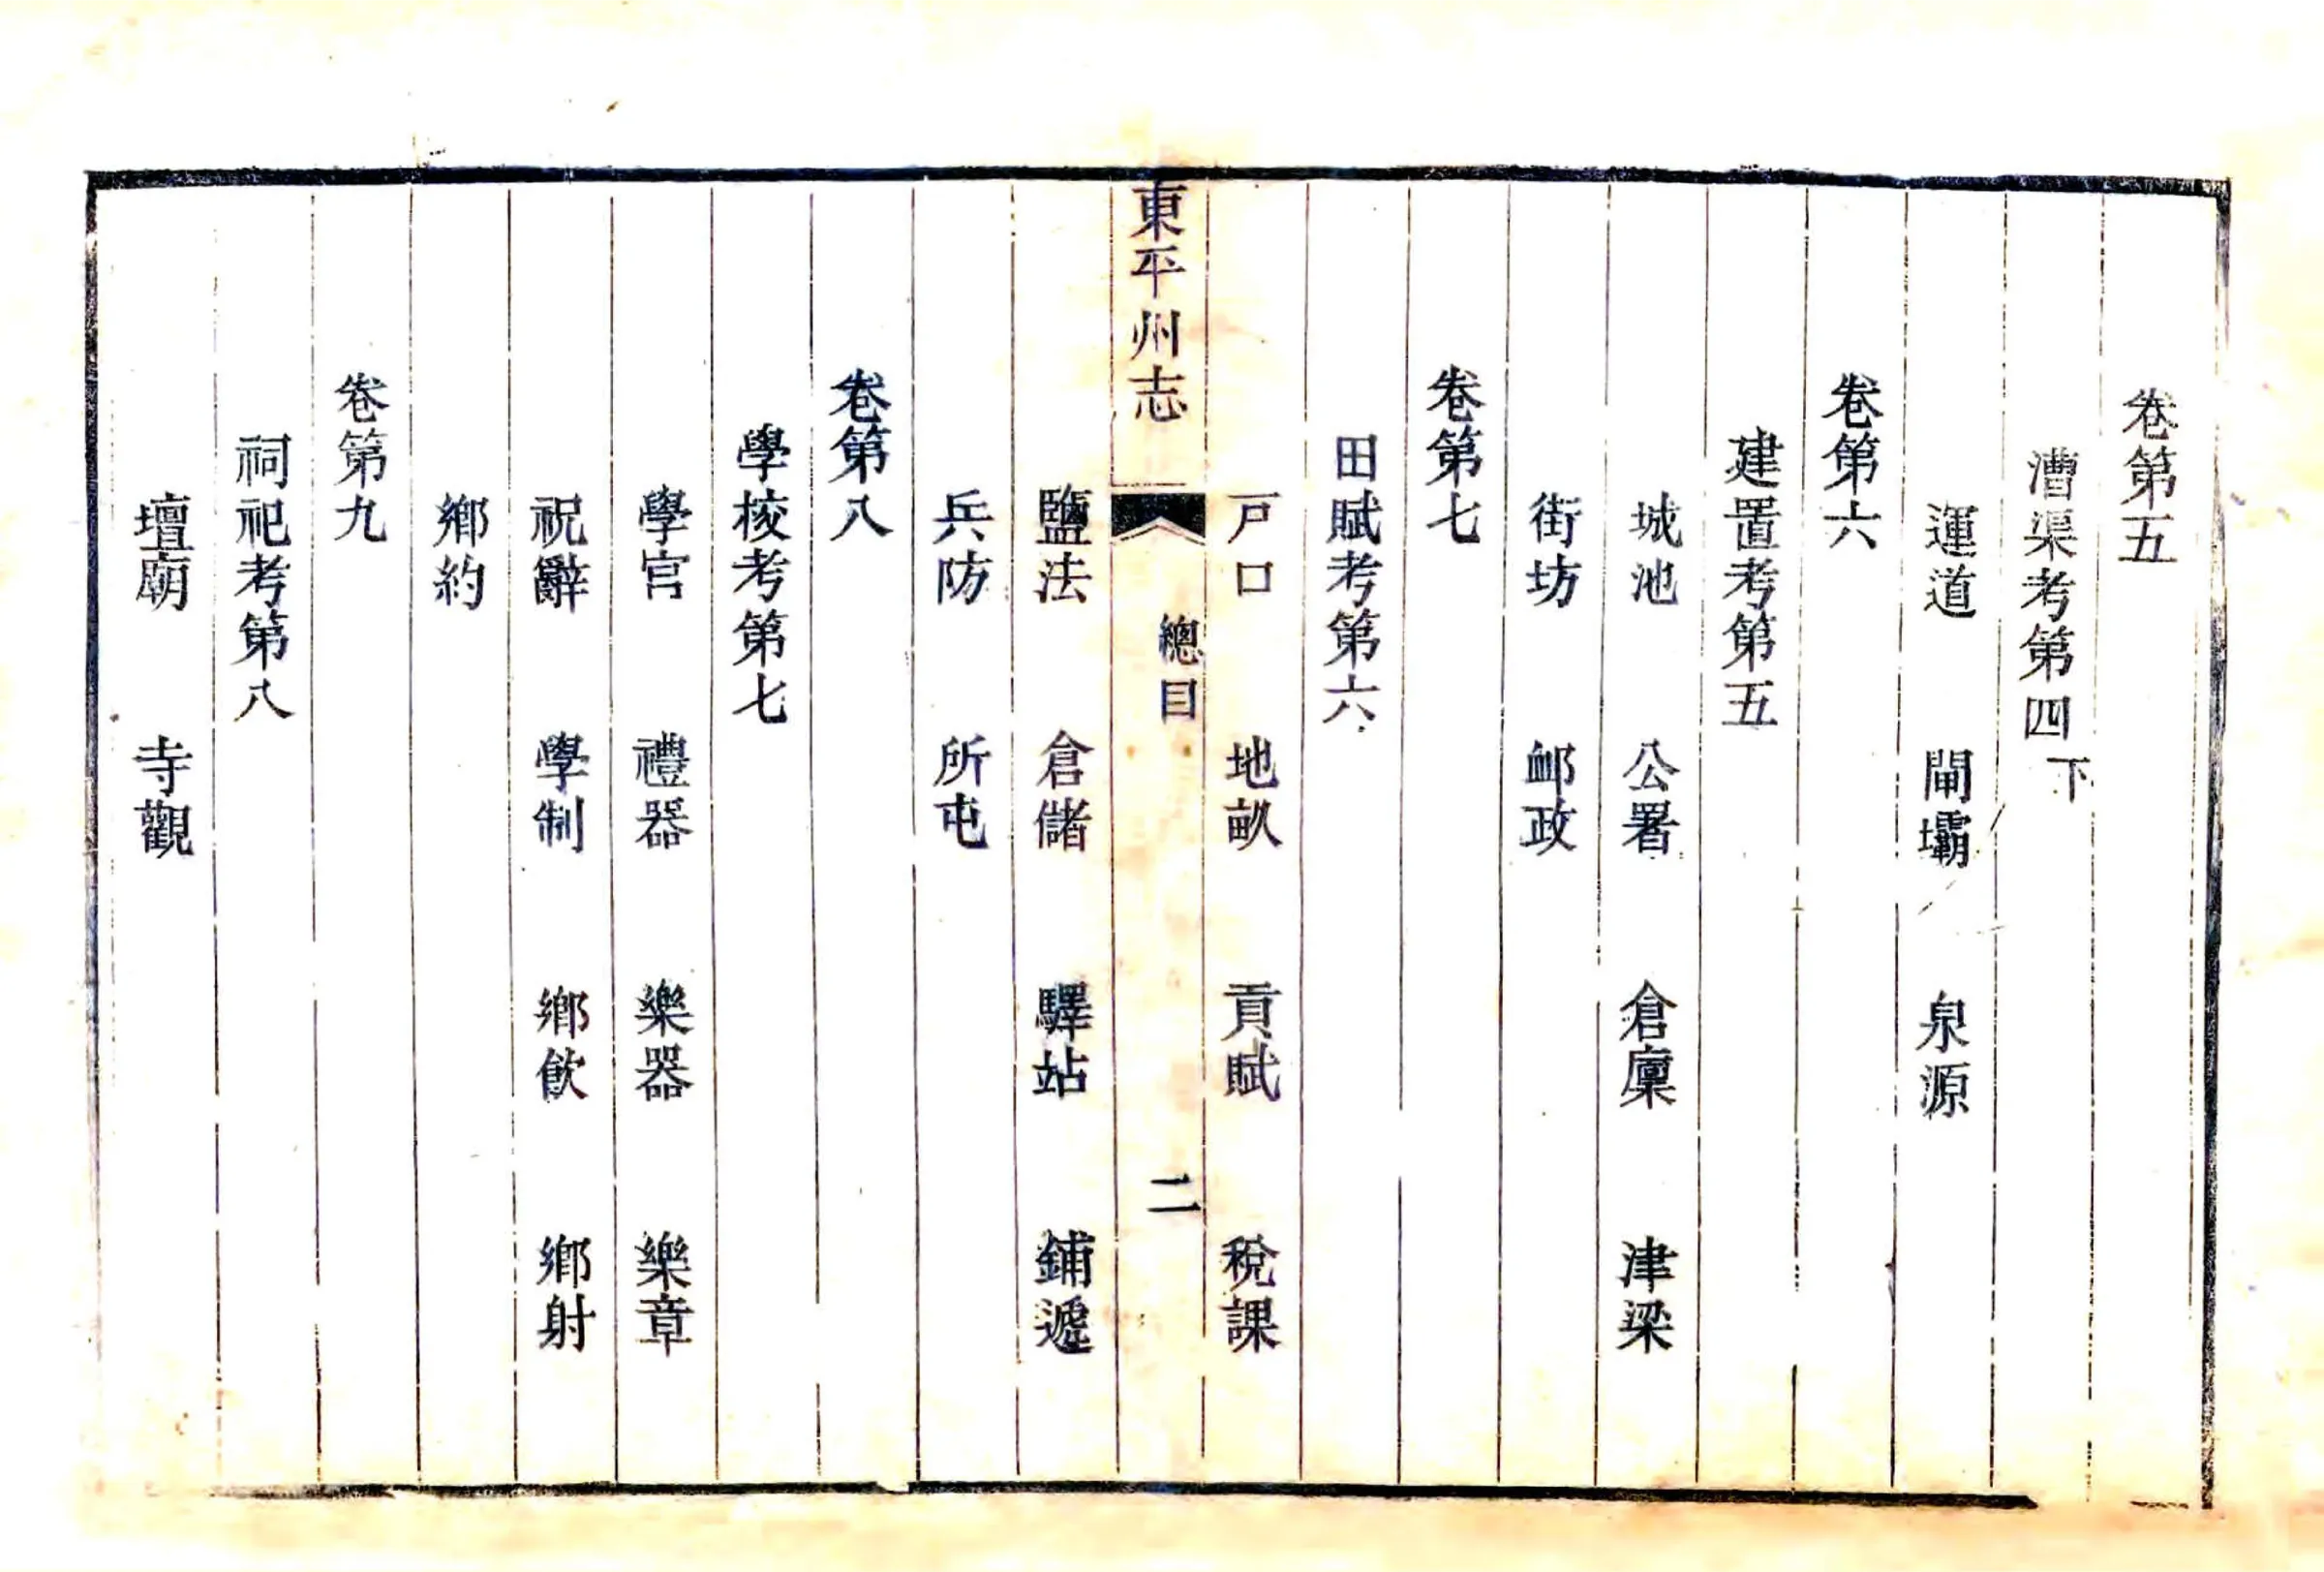 卷第五
漕渠考第四下
運道 閘壩 泉源
卷第六
建置考第五
城池 公署 倉廩 津梁
街坊 邮政
卷第七
田賦考第六
戸口 地畝 貢賦 稅課
東平州志 總目 二
鹽法 倉儲 驛站 鋪遞
兵防 所屯
卷第八
學校考第七
學官 禮器 樂器 樂章
祝辭 學制 鄉飲 鄉射
鄉約
卷第九
祠祀考第八
壇廟 寺觀